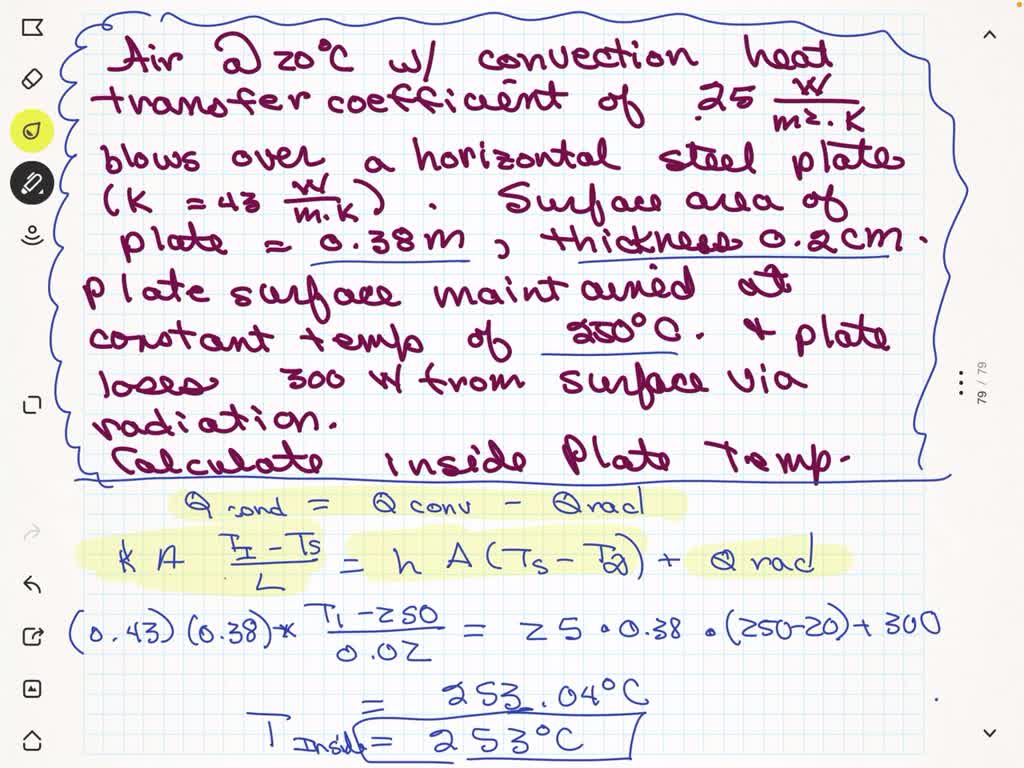 Air @ 20°C w/ convection heat
transfer coefficient of .25 W/m²·K
blows over a horizontal steel plate
(K = 43 W/m·K). Surface area of
plate = 0.38m, thickness 0.2cm.
plate surface maintained at
constant temp of 250°C. & plate
loses 300 W from surface via
radiation.
Calculate inside Plate Temp.
Q cond = Q conv - Q rad
K A (T_I - T_S)/L = h A (T_S - T_∞) + Q rad
(0.43)(0.38) * (T_1 - 250)/0.02 = 25 · 0.38 · (250-20) + 300
= 253.04°C
T Inside = 253°C
79 / 79